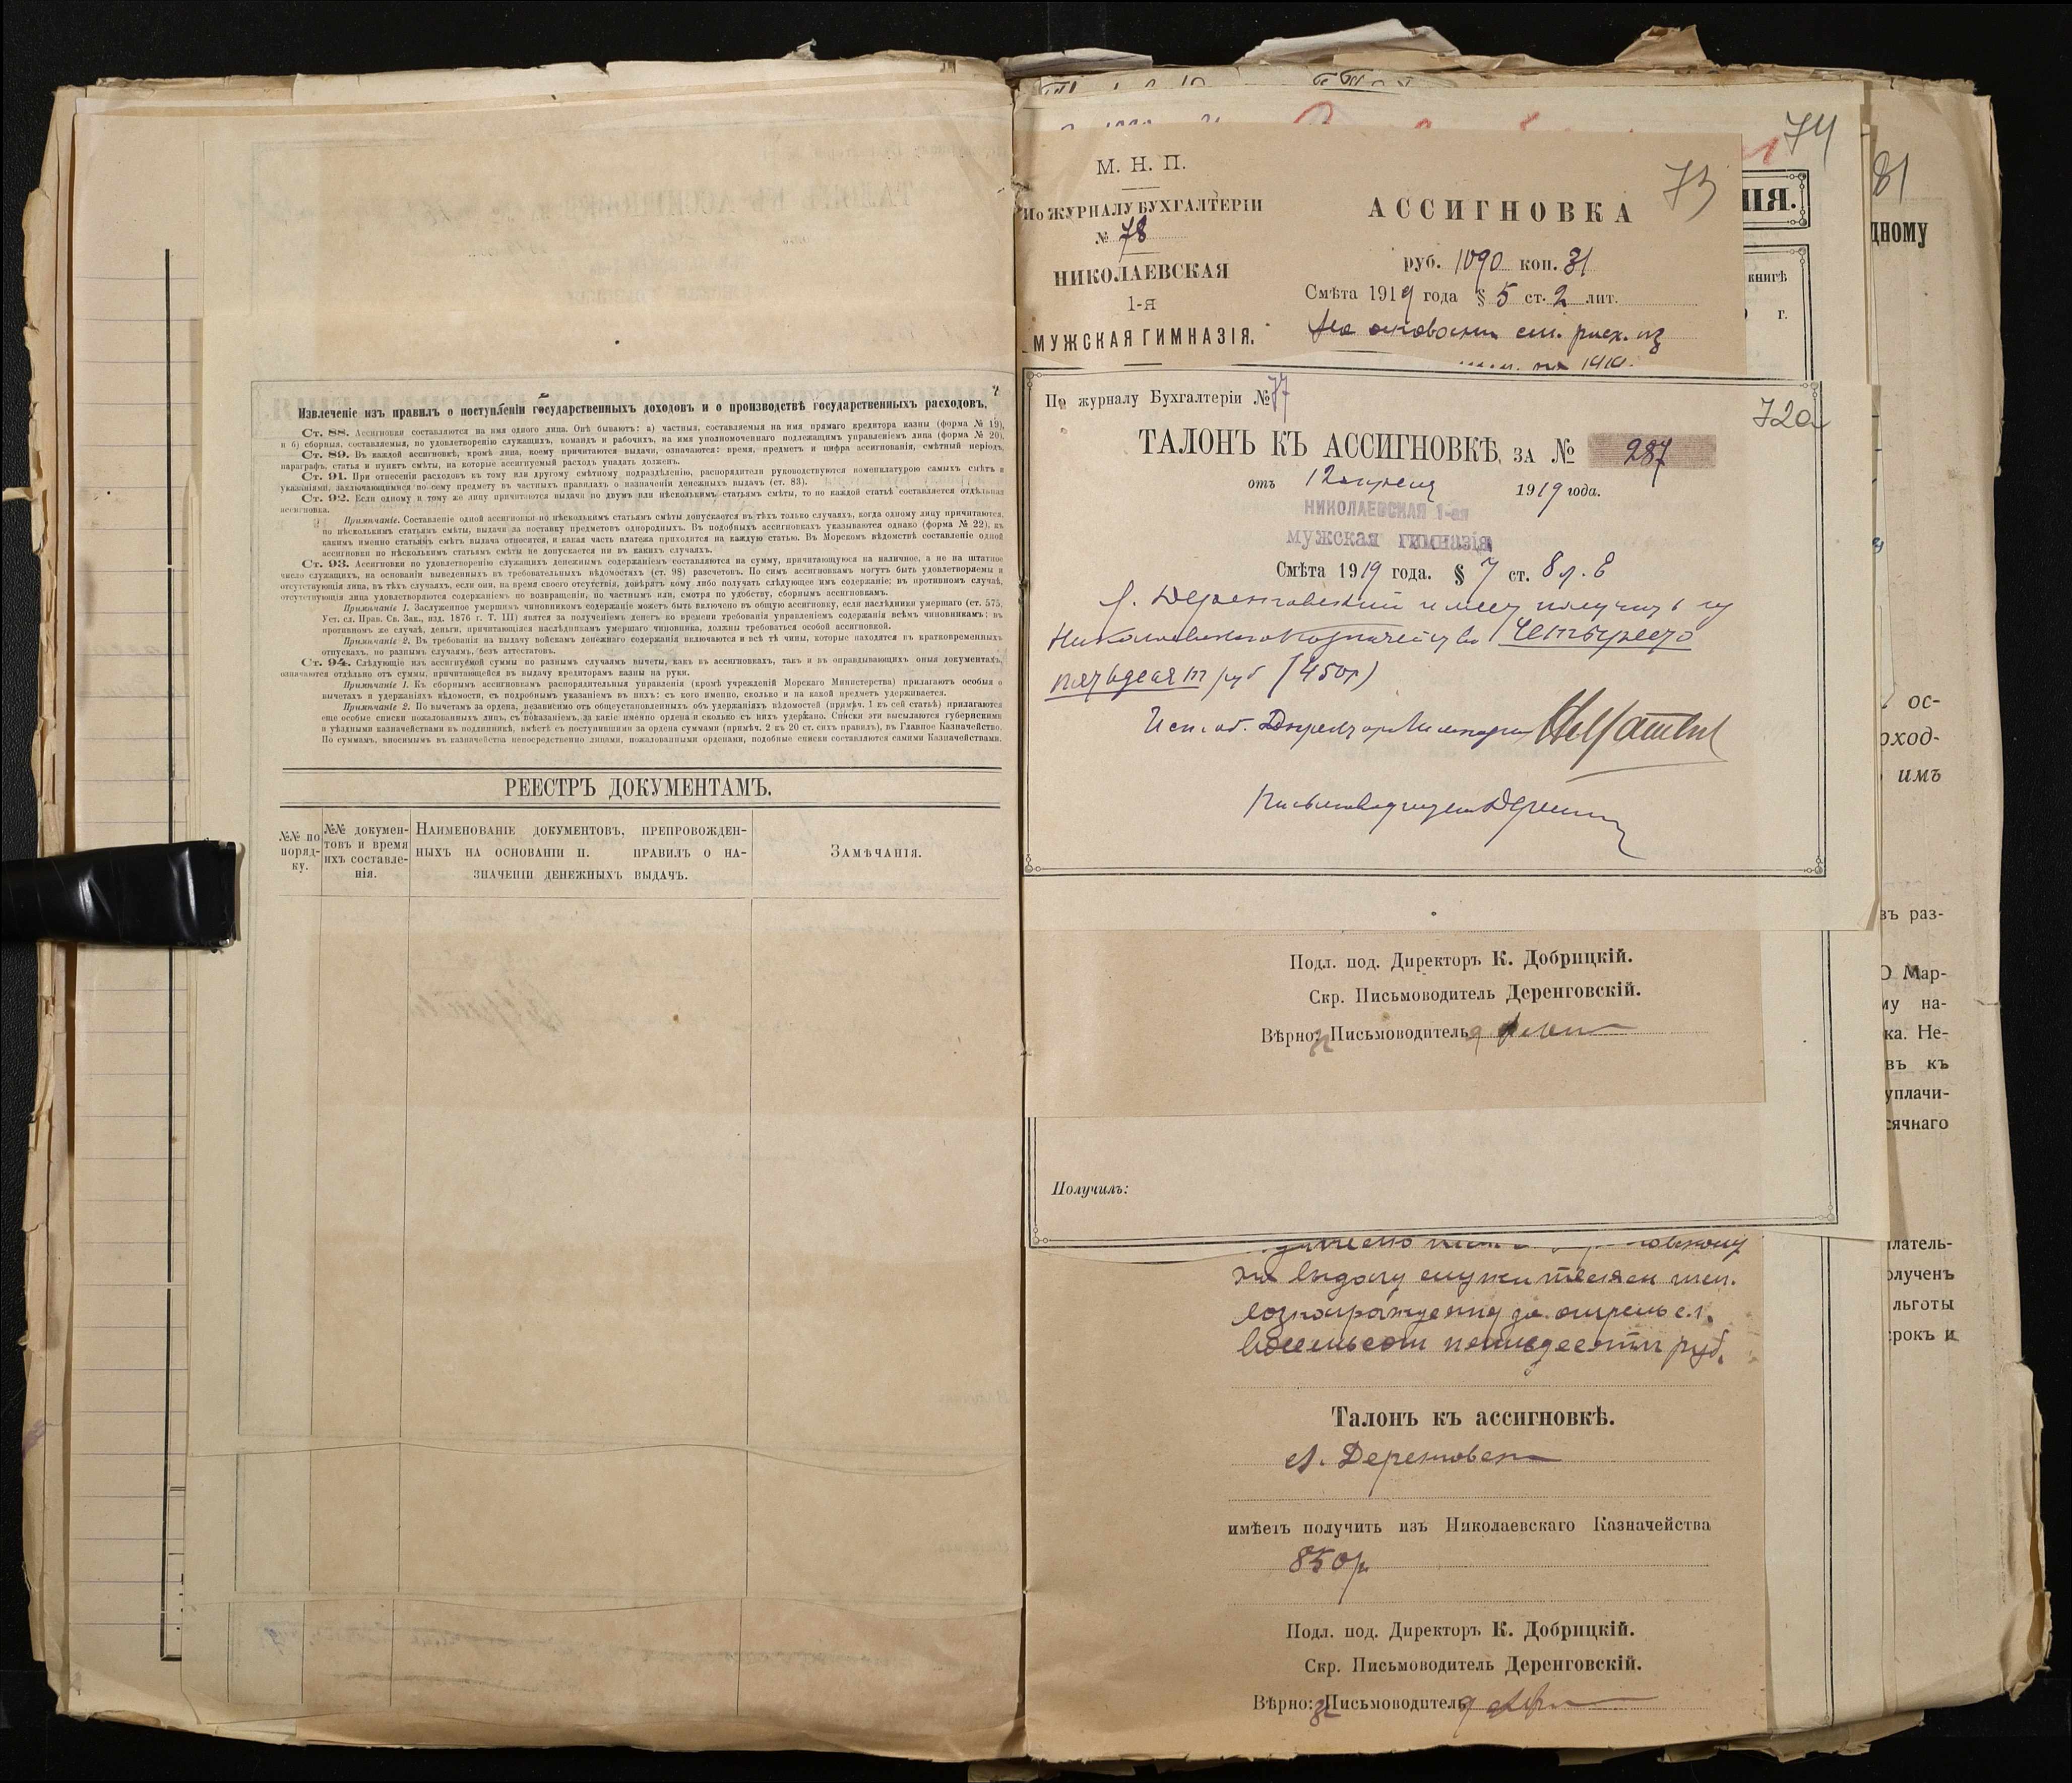 Извлеченіе изъ правилъ о поступленіи государственныхъ доходовъ и о производствѣ государственныхъ расходовъ.
Ст. 88. Ассигновки составляются на имя одного лица. Онѣ бываютъ: а) частныя, составляемыя на имя прямаго кредитора казны (форма № 19),
и б) сборныя, составляемыя, по удовлетворенію служащихъ, командъ и рабочихъ, на имя уполномоченнаго подлежащимъ управленіемъ лица (форма № 20).
Ст. 89. Въ каждой ассигновкѣ, кромѣ лица, коему причитаются выдачи, означаются: время, предметъ и цифра ассигнованія, смѣтный періодъ,
параграфъ, статья и пунктъ смѣты, на которые ассигнуемый расходъ упадать долженъ.
Ст. 91. При отнесеніи расходовъ къ тому или другому смѣтному подраздѣленію, распорядители руководствуются номенклатурою самыхъ смѣтъ и
указаніями, заключающимися по сему предмету въ частныхъ правилахъ о назначеніи денежныхъ выдачъ (ст. 83).
Ст. 92. Если одному и тому же лицу причитаются выдачи по двумъ или нѣсколькимъ статьямъ смѣты, то по каждой статьѣ составляется отдѣльная
ассигновка.
Примѣчаніе. Составленіе одной ассигновки по нѣсколькимъ статьямъ смѣты допускается въ тѣхъ только случаяхъ, когда одному лицу причитаются,
по нѣсколькимъ статьямъ смѣты, выдачи за поставку предметовъ однородныхъ. Въ подобныхъ ассигновкахъ указываются однако (форма № 22), къ
какимъ именно статьямъ смѣтъ выдача относится, и какая часть платежа приходится на каждую статью. Въ Морскомъ вѣдомствѣ составленіе одной
ассигновки по нѣсколькимъ статьямъ смѣты не допускается ни въ какихъ случаяхъ.
Ст. 93. Ассигновки по удовлетворенію служащихъ денежнымъ содержаніемъ составляются на сумму, причитающуюся на наличное, а не на штатное
число служащихъ, на основаніи выведенныхъ въ требовательныхъ вѣдомостяхъ (ст. 98) разсчетовъ. По симъ ассигновкамъ могутъ быть удовлетворяемы и
отсутствующія лица, въ тѣхъ случаяхъ, если они, на время своего отсутствія, довѣрятъ кому либо получать слѣдующее имъ содержаніе; въ противномъ случаѣ,
отсутствующія лица удовлетворяются содержаніемъ по возвращеніи, по частнымъ или, смотря по удобству, сборнымъ ассигновкамъ.
Примѣчаніе 1. Заслуженное умершимъ чиновникомъ содержаніе можетъ быть включено въ общую ассигновку, если наслѣдники умершаго (ст. 575,
Уст. сл. Прав. Св. Зак., изд. 1876 г. Т. III) явятся за полученіемъ денегъ ко времени требованія управленіемъ содержанія всѣмъ чиновникамъ; въ
противномъ же случаѣ, деньги, причитающіяся наслѣдникамъ умершаго чиновника, должны требоваться особой ассигновкой.
Примѣчаніе 2. Въ требованія на выдачу войскамъ денежнаго содержанія включаются и всѣ тѣ чины, которые находятся въ кратковременныхъ
отпускахъ, по разнымъ случаямъ, безъ аттестатовъ.
Ст. 94. Слѣдующіе изъ ассигнуемой суммы по разнымъ случаямъ вычеты, какъ въ ассигновкахъ, такъ и въ оправдывающихъ оныя документахъ,
означаются отдѣльно отъ суммы, причитающейся въ выдачу кредиторамъ казны на руки.
Примѣчаніе 1. Къ сборнымъ ассигновкамъ распорядительныя управленія (кромѣ учрежденій Морскаго Министерства) прилагаютъ особыя о
вычетахъ и удержаніяхъ вѣдомости, съ подробнымъ указаніемъ въ нихъ: съ кого именно, сколько и на какой предметъ удерживается.
Примѣчаніе 2. По вычетамъ за ордена, независимо отъ общеустановленныхъ объ удержаніяхъ вѣдомостей (примѣч. 1 къ сей статьѣ) прилагаются
еще особые списки пожалованныхъ лицъ, съ показаніемъ, за какіе именно ордена и сколько съ нихъ удержано. Списки эти высылаются губернскими
и уѣздными казначействами въ подлинникѣ, вмѣстѣ съ поступившими за ордена суммами (примѣч. 2 къ 20 ст. сихъ правилъ), въ Главное Казначейство.
По суммамъ, вносимымъ въ казначейства непосредственно лицами, пожалованными орденами, подобные списки составляются самими Казначействами.
РЕЕСТРЪ ДОКУМЕНТАМЪ.
№№ по поряд-ку.
№№ докумен-товъ и время ихъ составле-нія.
Наименованіе документовъ, препровожден-
ныхъ на основаніи п. правилъ о на-
значеніи денежныхъ выдачъ.
Замѣчанія.
74
73
М. Н. П.
По ЖУРНАЛУ БУХГАЛТЕРІИ
№ 78
НИКОЛАЕВСКАЯ
1-я
МУЖСКАЯ ГИМНАЗІЯ.
АССИГНОВКА
руб. 1090 коп. 31
Смѣта 1919 года § 5 ст. 2 лит.
На основании см. расх. из
ІЯ.
книгѣ
г.
81
дному
По журналу Бухгалтеріи № 77
72а
ТАЛОНЪ КЪ АССИГНОВКѢ, ЗА № 287
отъ 1 апреля 1919 года.
НИКОЛАЕВСКАЯ 1-ая
мужская гимназія
Смѣта 1919 года. § 7 ст. 8 л. Е
А. Деренговский имеет получить из
Николаевского казначейства Четыреста
пятьдесят руб (450 р)
Исп. об. Директора
Письмоводитель
Подл. под. Директоръ К. Добрицкій.
Скр. Письмоводитель Деренговскій.
Вѣрно: Письмоводитель
Получилъ:
на выдачу служителям
вознаграждения за апрель с.г.
восемьсот пятьдесят руб.
Талонъ къ ассигновкѣ.
А. Деренговск
имѣетъ получить изъ Николаевскаго Казначейства
850 р
Подл. под. Директоръ К. Добрицкій.
Скр. Письмоводитель Деренговскій.
Вѣрно: Письмоводитель
ос-
оход-
имъ
въ раз-
О Мар-
му на-
ка. Не-
въ къ
уплачи-
сячнаго
платель-
олученъ
льготы
срокъ и